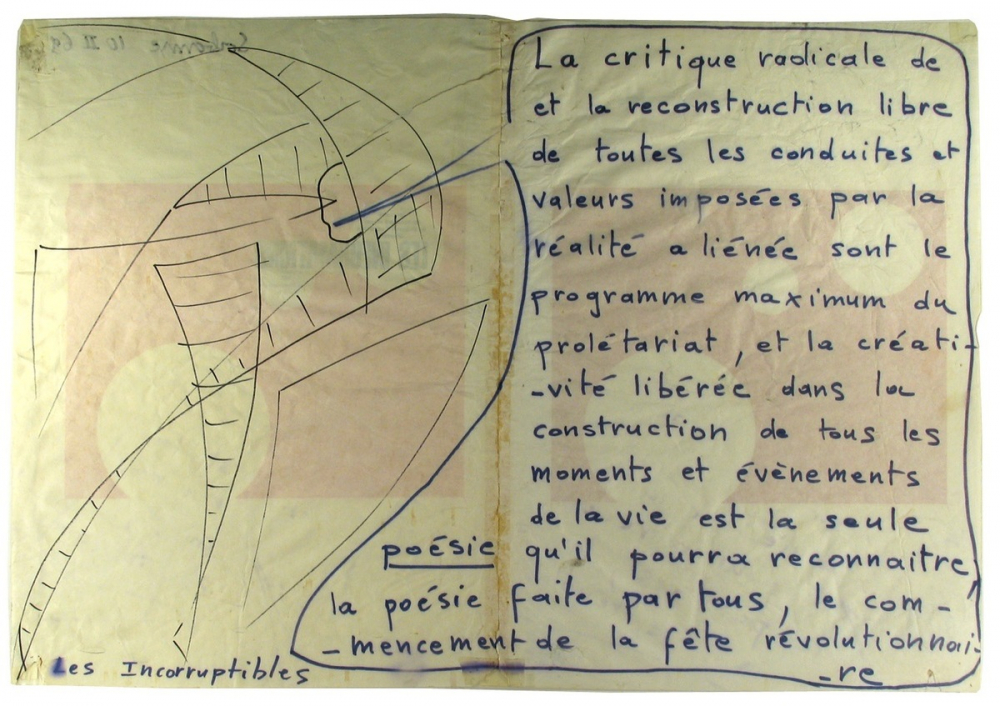 Sorbonne 10 II 69
La critique radicale de
et la reconstruction libre
de toutes les conduites et
valeurs imposées par la
réalité aliénée sont le
programme maximum du
prolétariat, et la créati-
-vité libérée dans la
construction de tous les
moments et évènements
de la vie est la seule
poésie qu'il pourra reconnaitre,
la poésie faite par tous, le com-
-mencement de la fête révolutionnai-
-re
Les Incorruptibles